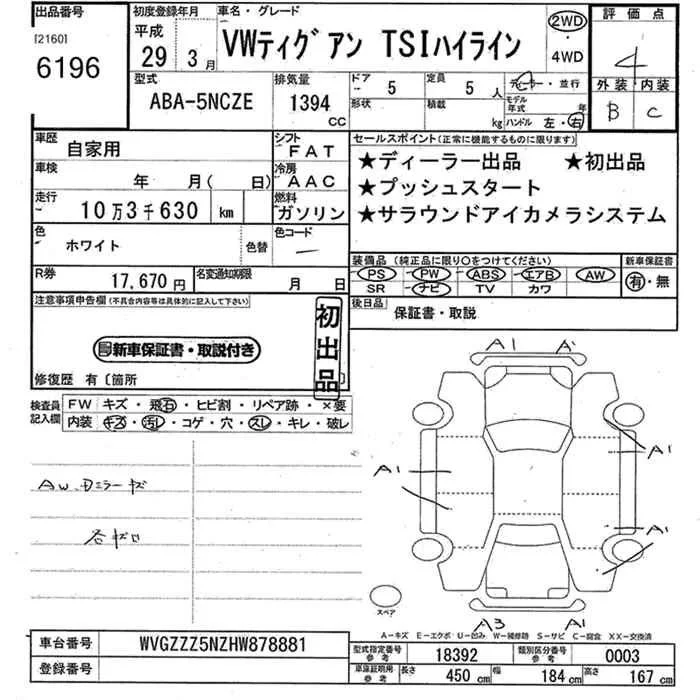 出品番号
[2160]
6196
初度登録年月
平成
29 3月
車名・グレード
VWティグアン TSIハイライン
2WD
・
4WD
評価点
4
外装 内装
B C
型式
ABA-5NCZE
排気量
1394
CC
ドア
5
定員
5 人
ディーラー・並行
形状
積載
kg
モデル年式 年
ハンドル 左・右
車歴
自家用
シフト
FAT
車検
年 月( 日)
冷房
AAC
走行
10万3千630 km
燃料
ガソリン
色
ホワイト
色替
色コード
R券
17,670円
名変通知期限
月 日
セールスポイント(正常に機能するものに限ります)
★ディーラー出品 ★初出品
★プッシュスタート
★サラウンドアイカメラシステム
装備品 (純正品に限り○をつけてください)
新車保証書
PS PW ABS エアB AW
有・無
SR ナビ TV カワ
後日品
保証書・取説
注意事項申告欄(不具合内容等は具体的に記入して下さい)
新車保証書・取説付き
初出品
修復歴 有〔箇所 〕
検査員記入欄
FW キズ・飛石・ヒビ割・リペア跡・×要
内装 キズ・汚レ・コゲ・穴・スレ・キレ・破レ
AW.Dミラーキズ
A1 A'
A1
A1
A1
A3 A1
スペア
A−キズ E−エクボ U−凹み W−補修跡 S−サビ C−腐食 XX−交換済
車台番号
WVGZZZ5NZHW878881
登録番号
型式指定番号
参考
18392
類別区分番号
参考
0003
車庫証明用
参考
長さ 450 cm 幅 184 cm 高さ 167 cm